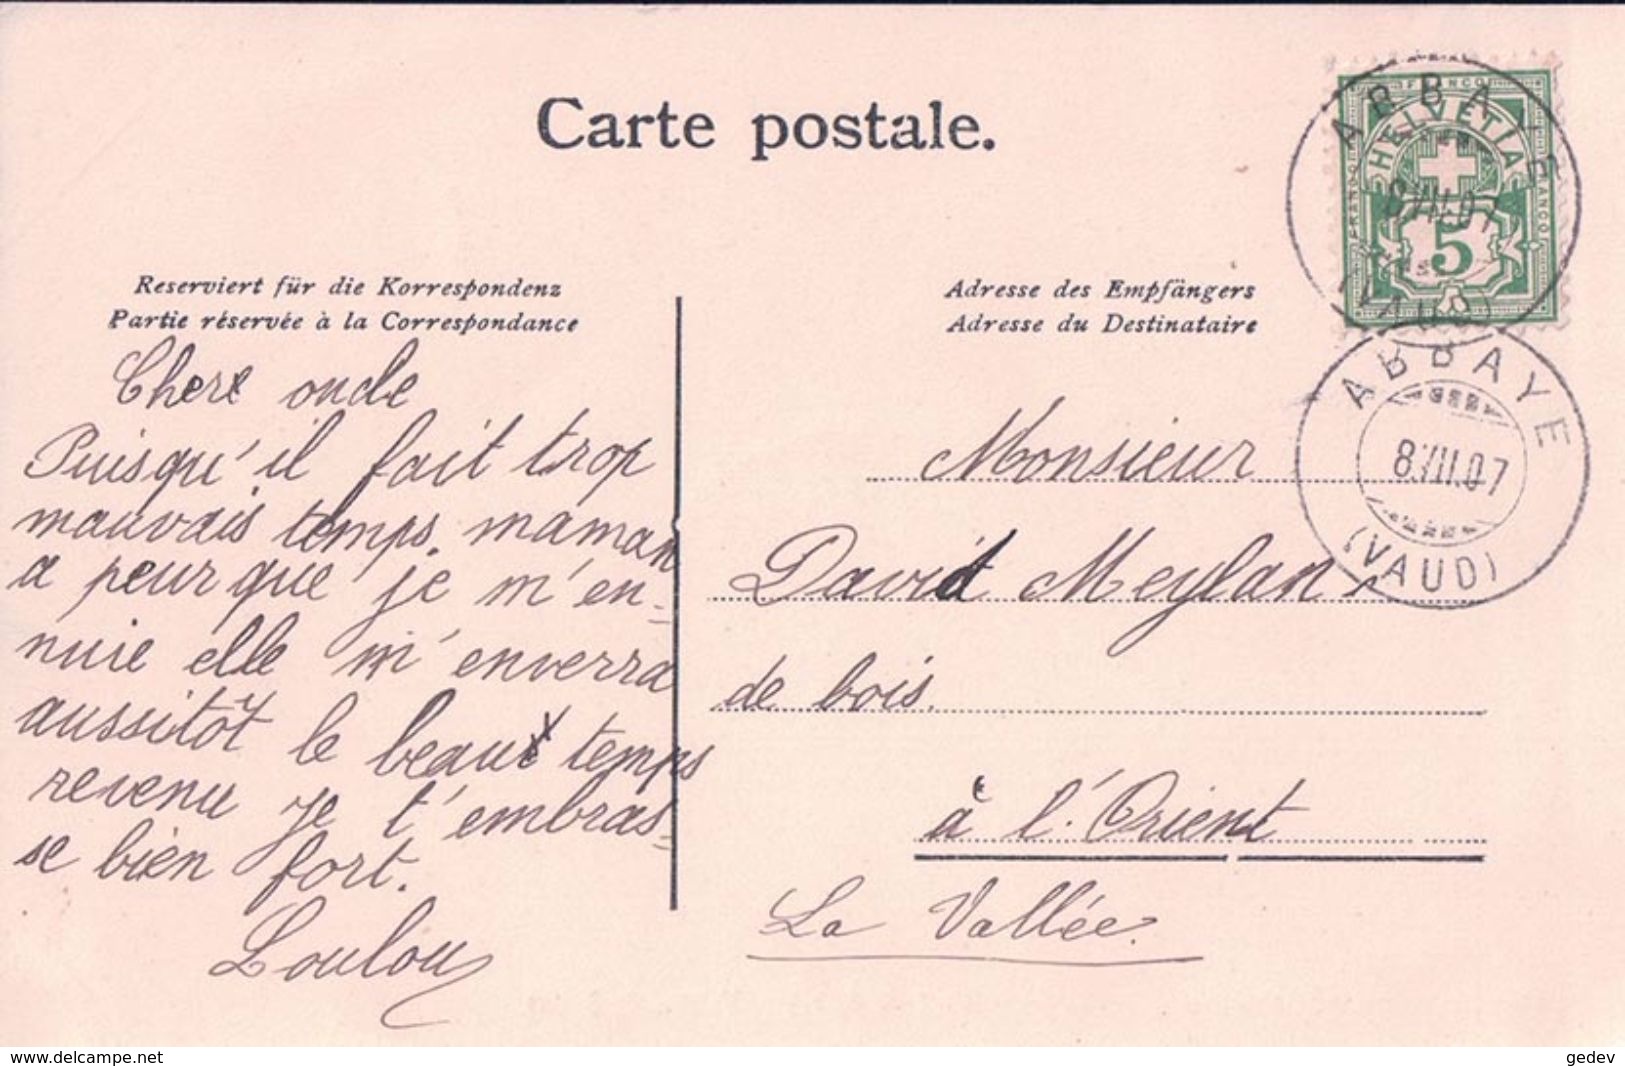 Carte postale.
Reserviert für die Korrespondenz
Partie réservée à la Correspondance
Adresse des Empfängers
Adresse du Destinataire
Chere oncle
Puisqu'il fait trop
mauvais temps. maman
a peur que je m'en-
nuie elle m'enverra
aussitôt le beau temps
revenu je t'embras-
se bien fort.
Loulou
Monsieur
David Meylan
de bois.
à l'Orient
La Vallée.
FRANCO
HELVETIA
FRANCO
FRANCO
5
ABBAYE
8.VII.07
(VAUD)
ABBAYE
8.VII.07
(VAUD)
www.delcampe.net
gedev